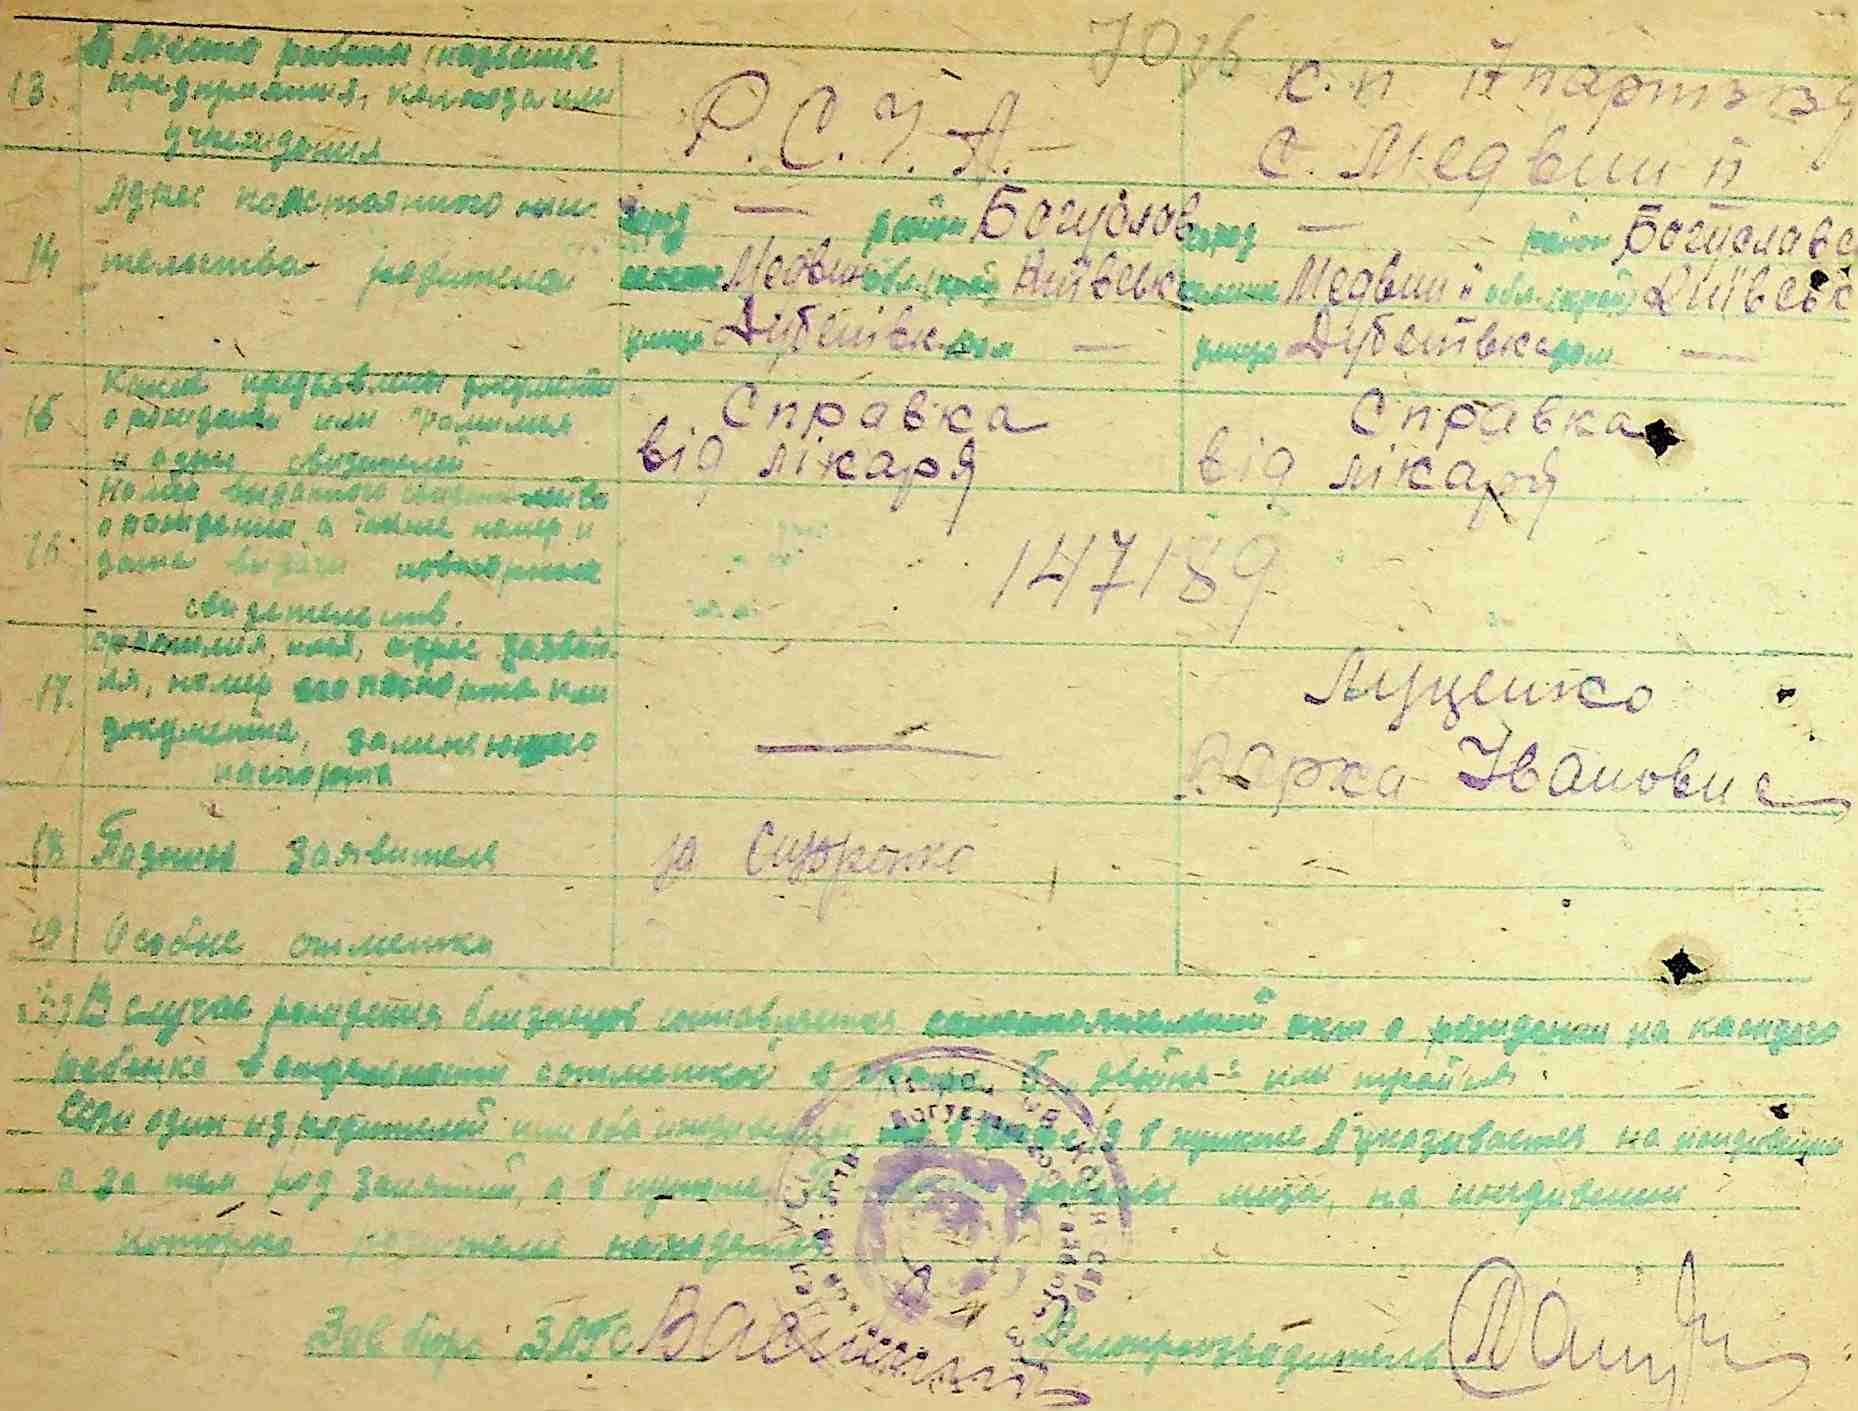 б) Место работы (название
13. предприятия, колхоза или
учреждения
Р.С.Ч.А.
с. Медвин
14 Адрес постоянного жи-
тельства родителей
город — район Богуслав
селение Медвин обл.(край) Київськ
улица дом —
город — район Богуславс
селение Медвин обл.(край) Київськ
улица дом —
15 Какие предъявлены документы
о рождении или фамилия
и адрес свидетелей
Справка
від лікаря
Справка
від лікаря
16. Номер выданного свидетельства
о рождении а также номер и
дата выдачи повторных
свидетельств.
147189
17. Фамилия, имя, адрес заявите-
ля, номер его паспорта или
документа, заменяющего
паспорта
—
Луценко
Варка Івановна
18 Подпись заявителя
за
19 Особые отметки
В случае рождения близнецов составляется самостоятельный акт о рождении на каждого
ребенка в отдельности с отметкой в графе 5 „двойня" или тройня.
Если один из родителей или оба в пункте А указывается на иждивении
а за тем род занятий, а в пункте Б работы лица, на иждивении
которого родители находятся
Зав бюро ЗАГС
Делопроизводитель